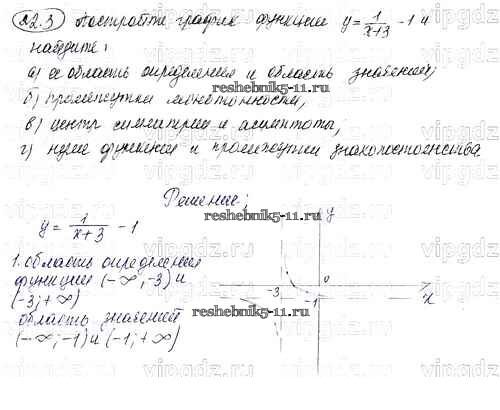 22.3 Постройте график функции y = 1/(x+3) - 1 и
найдите:
а) область определения и область значений;
б) промежутки монотонности;
в) центр симметрии и асимптоты;
г) нули функции и промежутки знакопостоянства.
Решение:
y = 1/(x+3) - 1
1. область определения
функции (-∞; -3) и
(-3; +∞)
область значений
(-∞; -1) и (-1; +∞)
y
0
-3
-1
x
reshebnik5-11.ru
reshebnik5-11.ru
reshebnik5-11.ru
vipgdz.ru